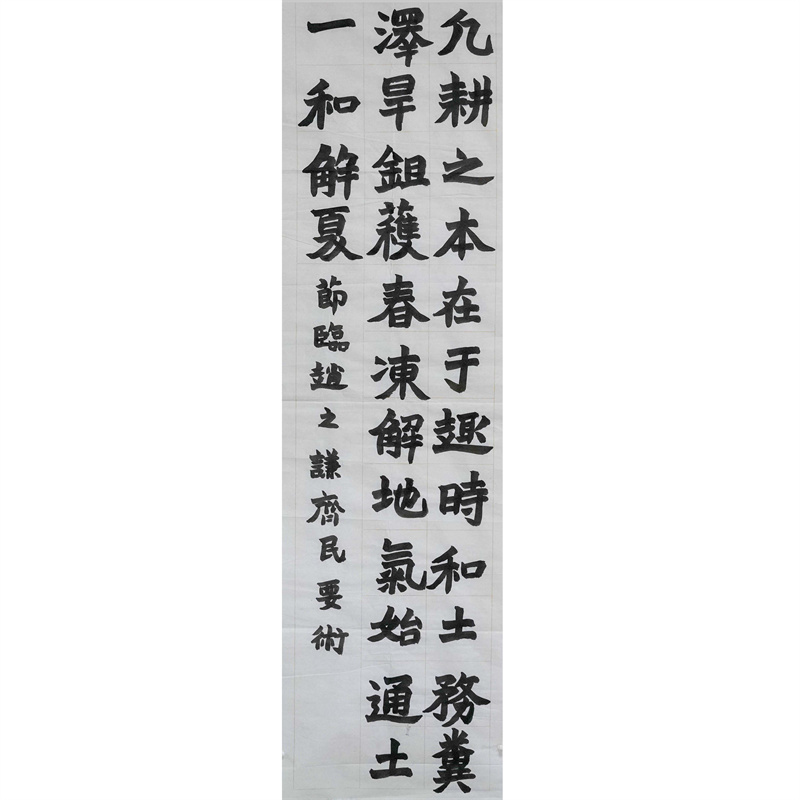 凢耕之本在于趣時和土務糞
澤旱鉏蒦春凍解地氣始通土
一和解夏
節臨趙之謙齊民要術